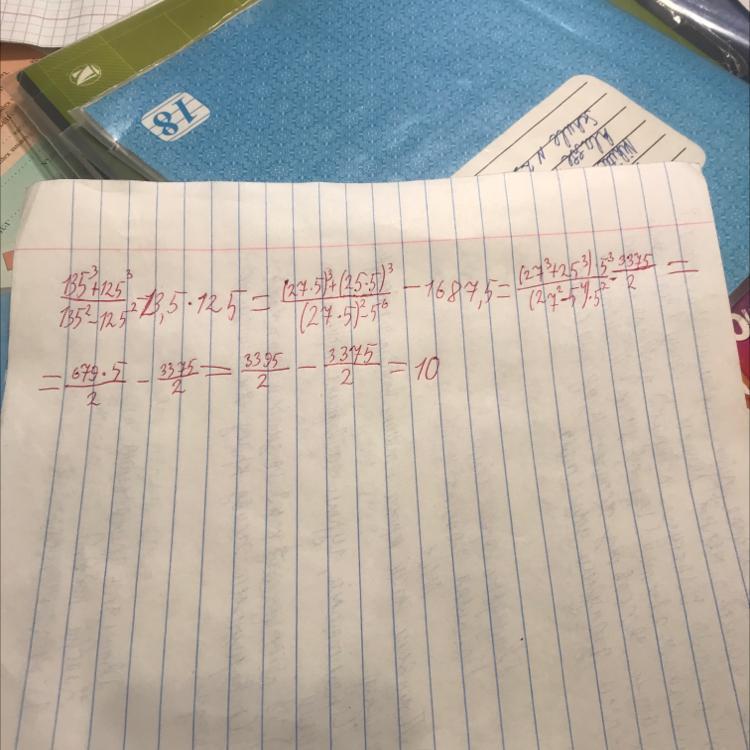 18
(135³+125³)/(135²-125²) - 13,5·125 = ((27·5)³+(25·5)³)/((27·5)²-5⁶) - 1687,5 = ((27³+25³)·5³)/((27²-5⁴)·5²) - 3375/2 =
= (679·5)/2 - 3375/2 = 3395/2 - 3375/2 = 10